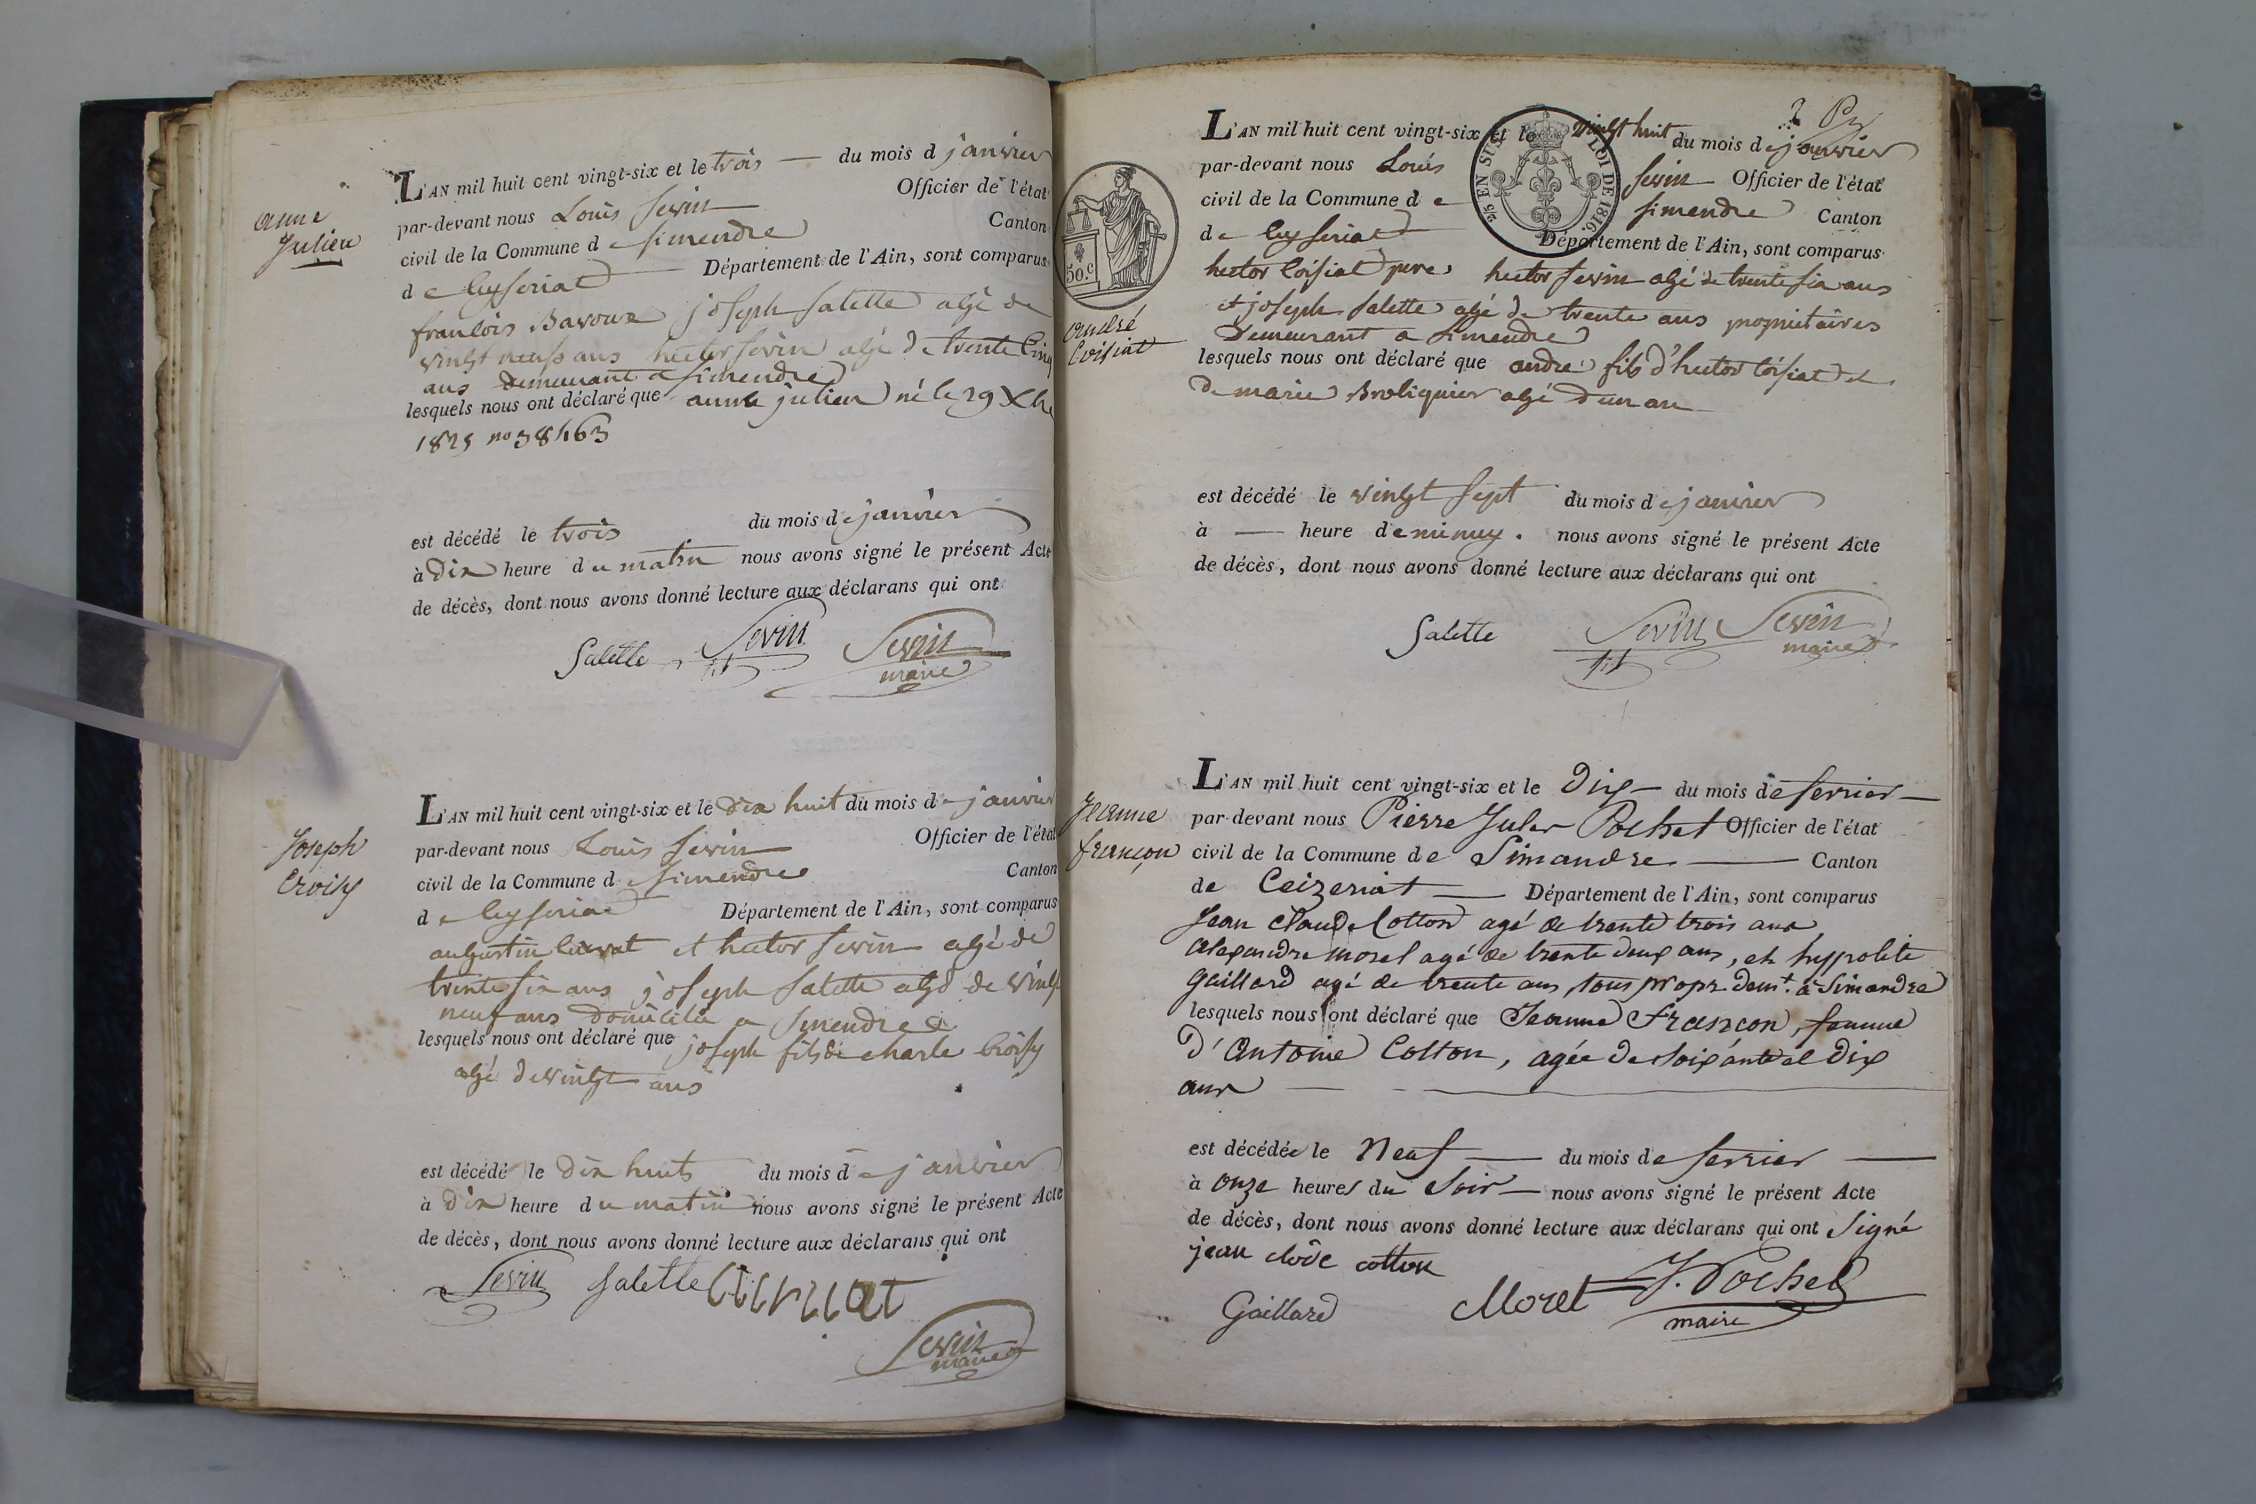 anne
Julien
L'AN mil huit cent vingt-six et le trois du mois d janvier
par-devant nous Louis Sevin Officier de l'état
civil de la Commune d e Simendre Canton
d e Ceyseriat Département de l'Ain, sont comparus
francois Bavoux joseph Salette agé de
vingt neuf ans hector Sevin agé de trente cinq
ans demeurant a Simendre
lesquels nous ont déclaré que anne julien né le 29 Xbre
1825 no 38463
est décédé le trois du mois de janvier
à dix heure du matin nous avons signé le présent Acte
de décès, dont nous avons donné lecture aux déclarans qui ont
Salette Sevin Sevin
maire
Joseph
Croisy
L'AN mil huit cent vingt-six et le dix huit du mois de janvier
par-devant nous Louis Sevin Officier de l'état
civil de la Commune d e Simendre Canton
d e Ceyseriat Département de l'Ain, sont comparus
augustin et hector Sevin agé de
trente six ans joseph Salette agé de vingt
neuf ans domicilié a Simendre
lesquels nous ont déclaré que joseph fils de charle Croisy
agé de vingt ans
est décédé le dix huit du mois de janvier
à dix heure du matin nous avons signé le présent Acte
de décès, dont nous avons donné lecture aux déclarans qui ont
Sevin Salette
Sevin
maire
2
L'AN mil huit cent vingt-six et le vingt huit du mois de janvier
par-devant nous Louis Sevin Officier de l'état
civil de la Commune d e Simendre Canton
de Ceyseriat Département de l'Ain, sont comparus
2/5 EN SUS LOI DE 1816
50.c
hector Coisiat pere hector Sevin agé de trente six ans
et joseph Salette agé de trente ans propriétaires
Demeurant a Simendre
andré
Coisiat
lesquels nous ont déclaré que andre fils d'hector Coisiat et
de marie Broliquier agé d'un an
est décédé le vingt sept du mois de janvier
à heure de minuy. nous avons signé le présent Acte
de décès, dont nous avons donné lecture aux déclarans qui ont
Salette Sevin Sevin
maire
Jeanne
françon
L'AN mil huit cent vingt-six et le Dix du mois de fevrier
par-devant nous Pierre Jules Pochet Officier de l'état
civil de la Commune de Simandre Canton
de Ceizeriat Département de l'Ain, sont comparus
Jean Claude Cotton agé de trente trois ans
alexandre Morel agé de trente deux ans, et hyppolite
Gaillard agé de trente ans, tous propr demt. à Simandre
lesquels nous ont déclaré que Jeanne Françon, femme
d'Antoine Cotton, agée de soixante et dix
ans
est décédée le Neuf du mois de fevrier
à onze heures du Soir nous avons signé le présent Acte
de décès, dont nous avons donné lecture aux déclarans qui ont Signé
jean clode cotton
Gaillard Morel J. Pochet
maire